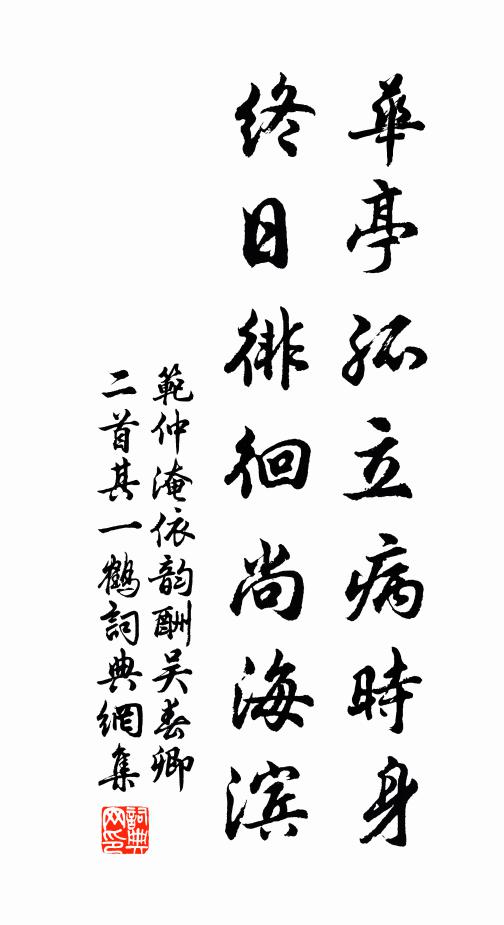 華亭孤立病時身
終日徘徊尚海滨
範仲淹依韵酬吴春卿
二首其一鶴詞典網集
詞典
网印